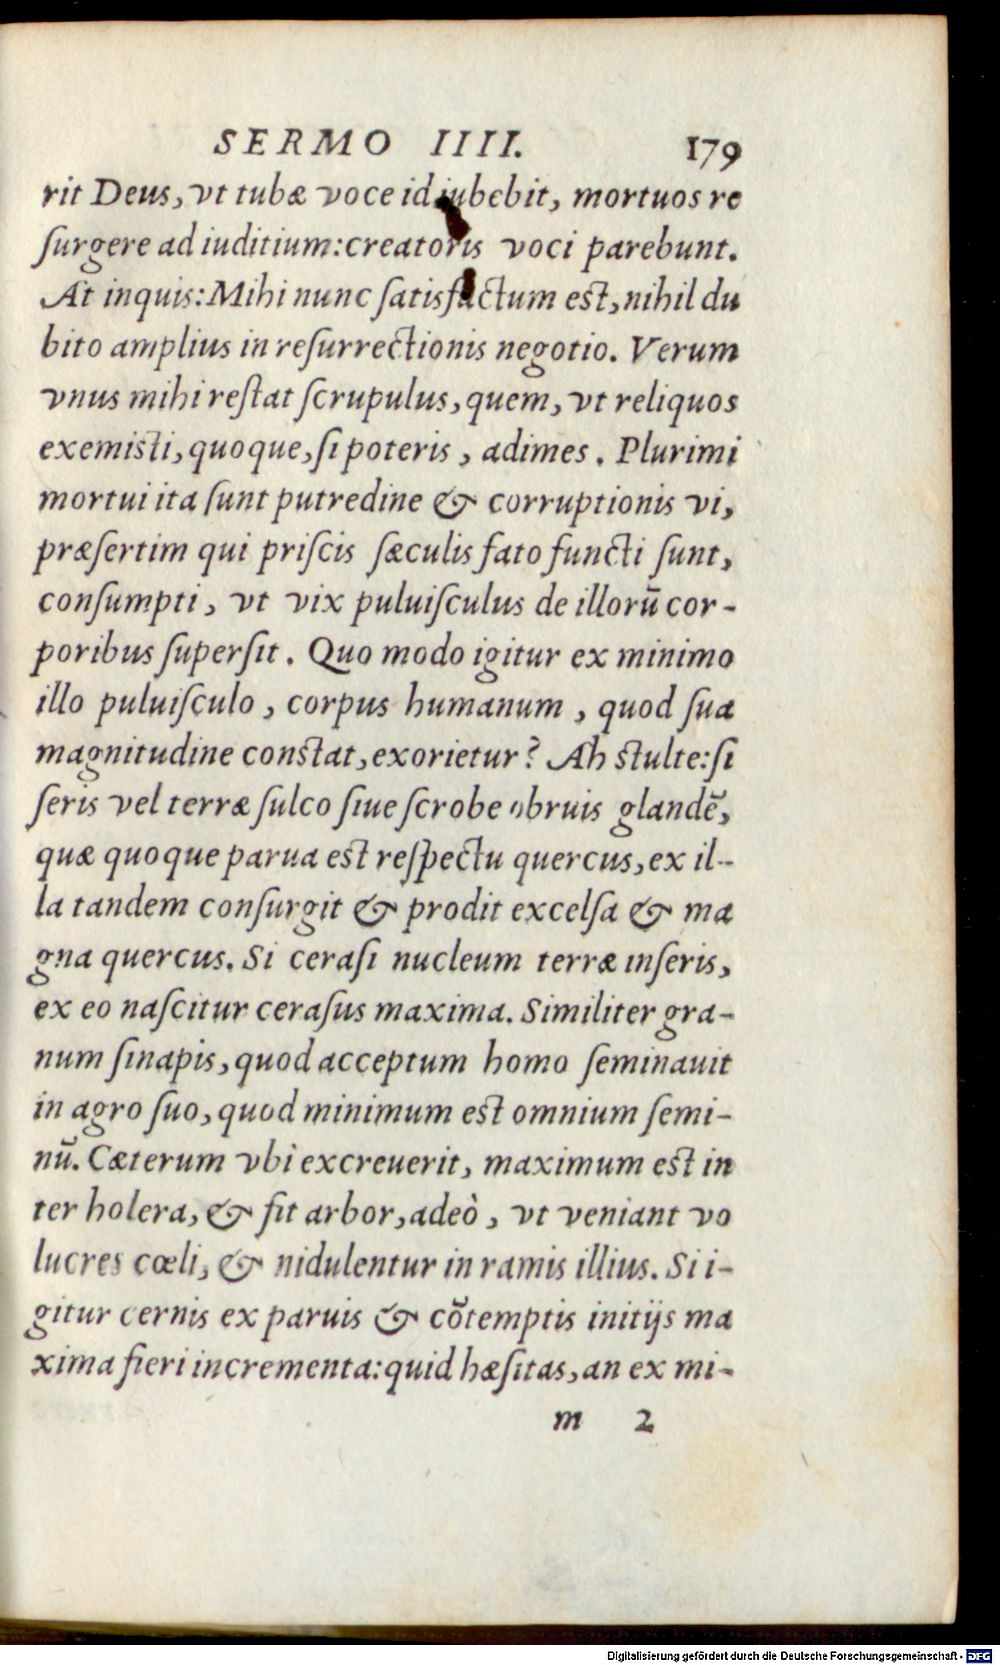 SERMO IIII. 179
rit Deus, vt tubæ voce id iubebit, mortuos re
ſurgere ad iuditium: creatoris voci parebunt.
At inquis: Mihi nunc ſatisfactum est, nihil du
bito amplius in reſurrectionis negotio. Verum
vnus mihi reſtat ſcrupulus, quem, vt reliquos
exemisti, quoque, ſi poteris, adimes. Plurimi
mortui ita ſunt putredine & corruptionis vi,
præſertim qui priſcis ſæculis fato functi ſunt,
conſumpti, vt vix puluiſculus de illorū cor-
poribus ſuperſit. Quo modo igitur ex minimo
illo puluiſculo, corpus humanum, quod ſua
magnitudine constat, exorietur? Ah stulte: ſi
ſeris vel terræ ſulco ſiue ſcrobe obruis glandē,
quæ quoque parua est reſpectu quercus, ex il-
la tandem conſurgit & prodit excelſa & ma
gna quercus. Si ceraſi nucleum terræ inſeris,
ex eo naſcitur ceraſus maxima. Similiter gra-
num ſinapis, quod acceptum homo ſeminauit
in agro ſuo, quod minimum est omnium ſemi-
nū. Cæterum vbi excreuerit, maximum est in
ter holera, & fit arbor, adeò, vt veniant vo
lucres cœli, & nidulentur in ramis illius. Si i-
gitur cernis ex paruis & cōtemptis initijs ma
xima fieri incrementa: quid hæſitas, an ex mi-
m 2
Digitalisierung gefördert durch die Deutsche Forschungsgemeinschaft - DFG